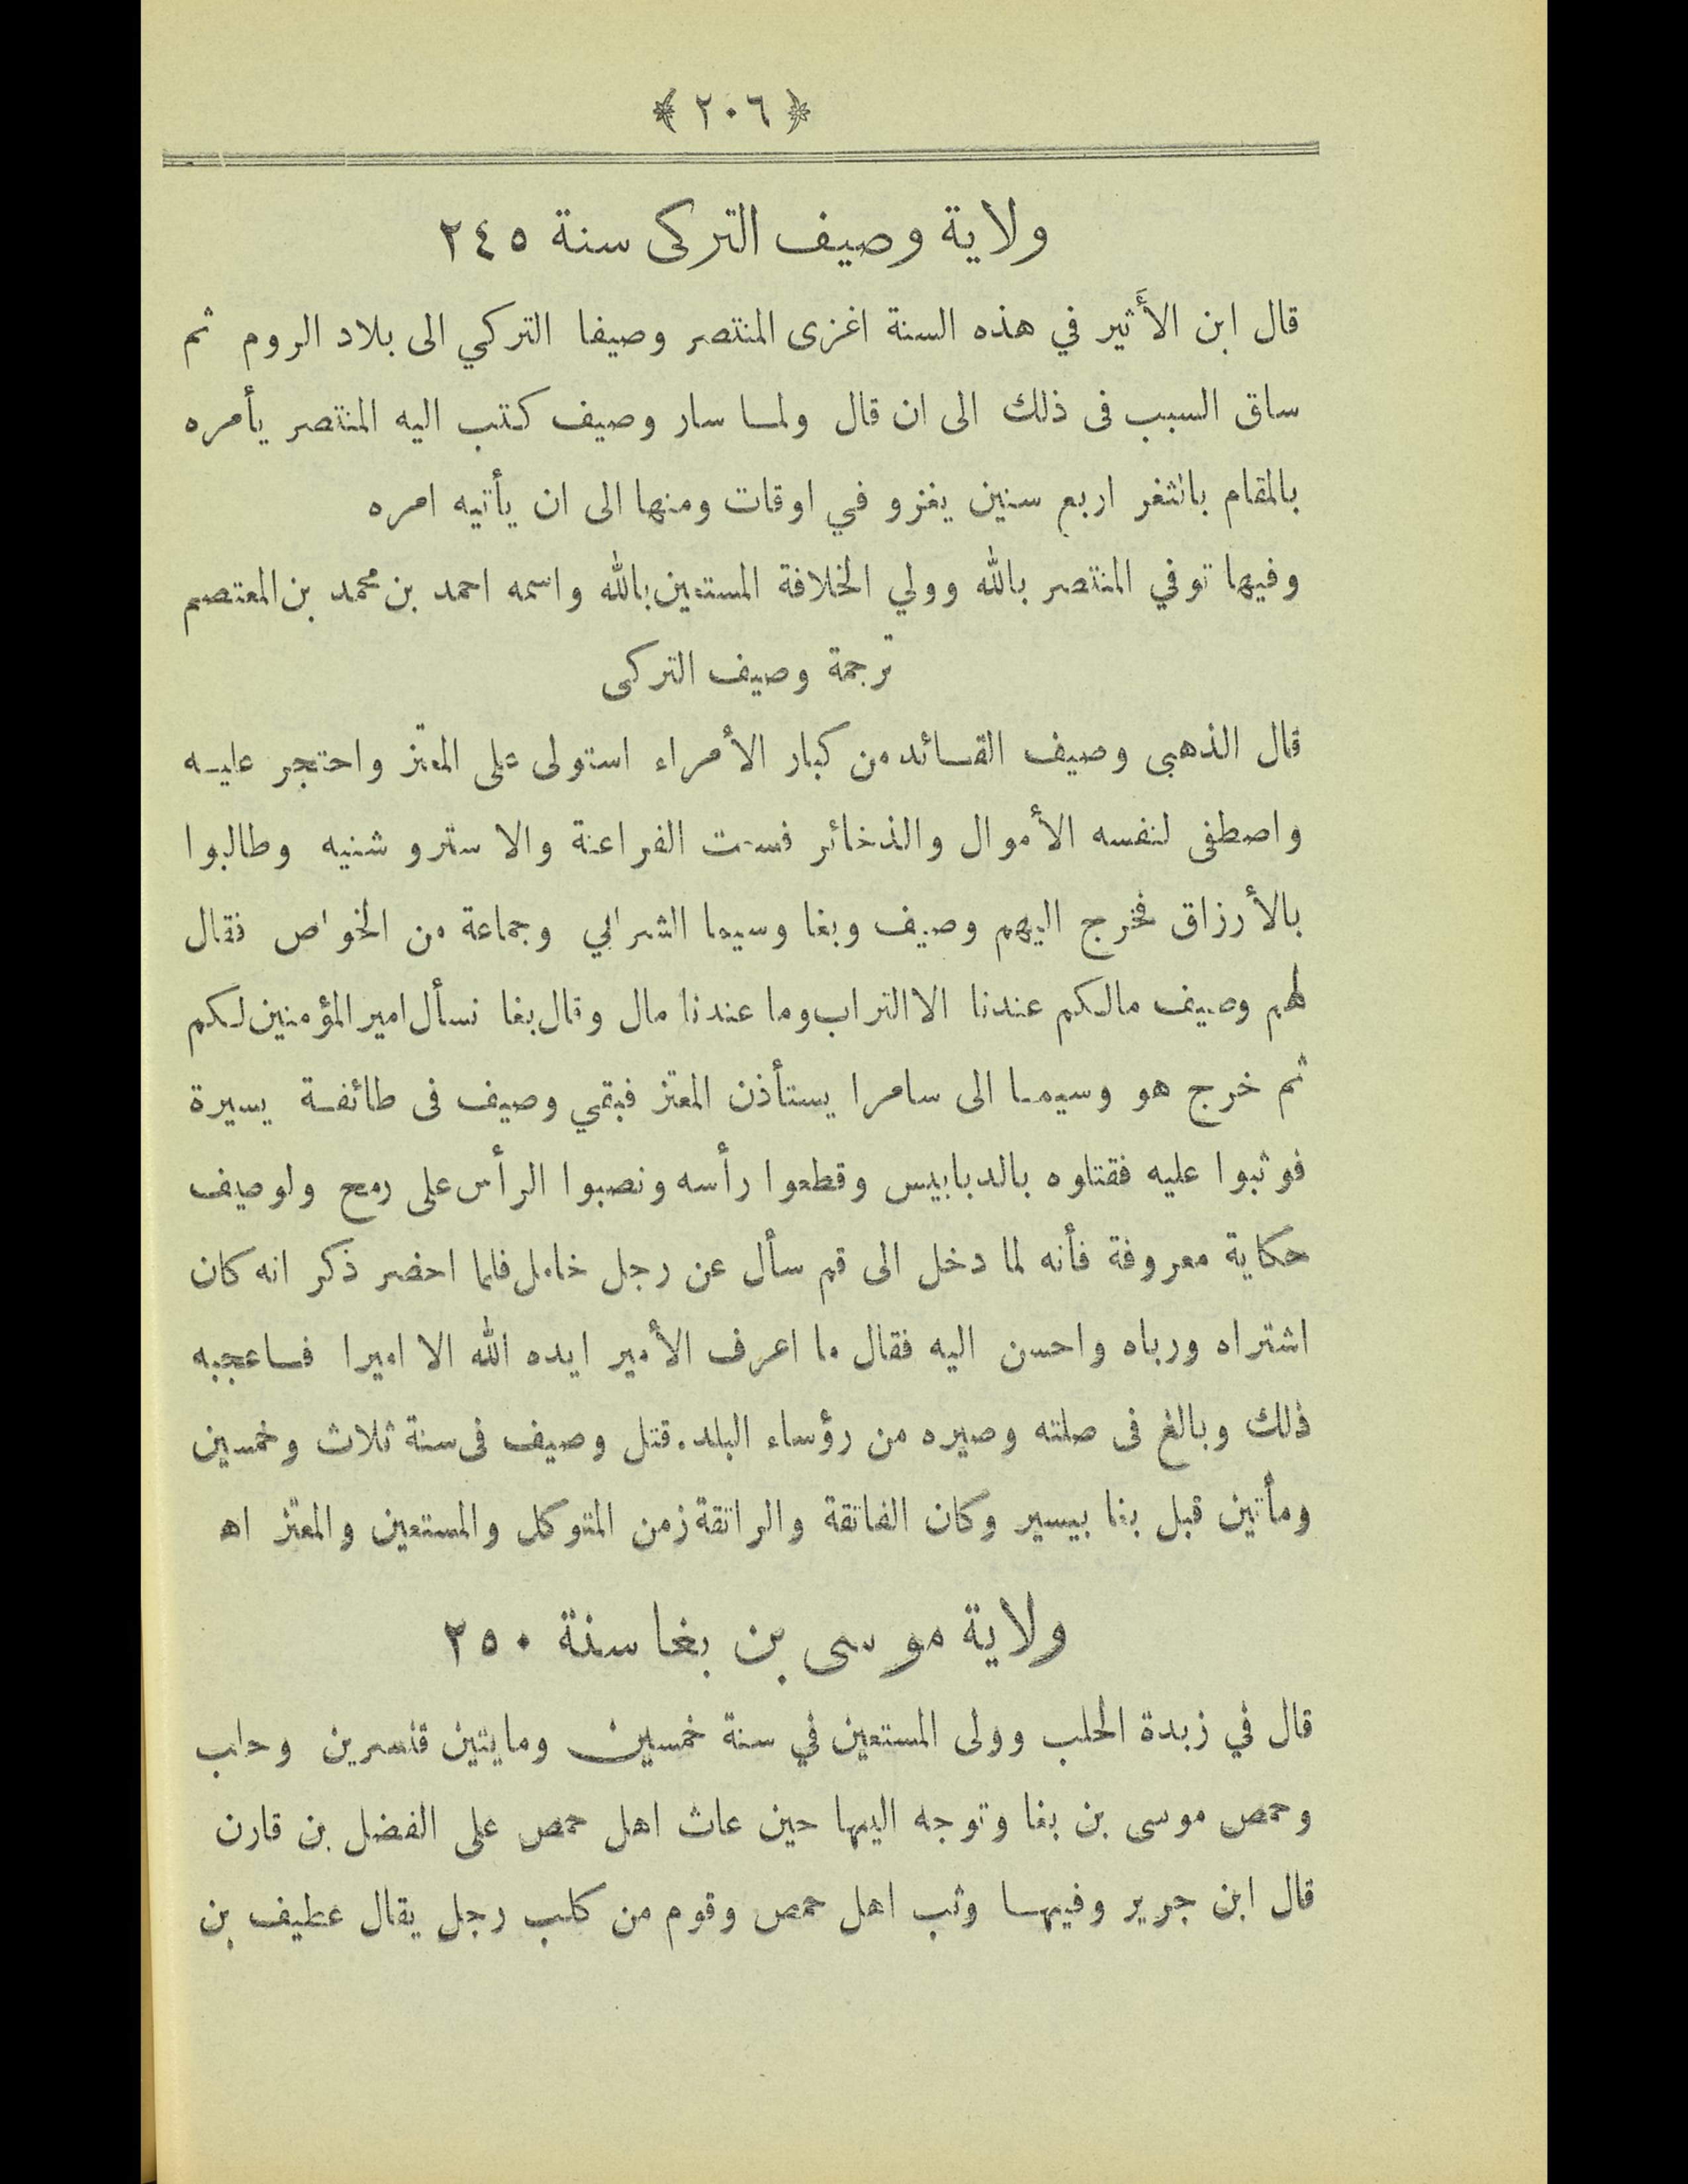 ﴿ ٢٠٦ ﴾
ولاية وصيف التركى سنة ٢٤٥
قال ابن الأَثير في هذه السنة اغزى المنتصر وصيفا التركي الى بلاد الروم ثم
ساق السبب فى ذلك الى ان قال ولما سار وصيف كتب اليه المنتصر يأمره
بالمقام بالثغر اربع سنين يغزو في اوقات ومنها الى ان يأتيه امره
وفيها توفي المنتصر بالله وولي الخلافة المستعين بالله واسمه احمد بن محمد بن المعتصم
ترجمة وصيف التركى
قال الذهبى وصيف القائد من كبار الأمراء استولى على المعتز واحتجر عليه
واصطفى لنفسه الأموال والذخائر فسمت الفراعنة والاسترو شنيه وطالبوا
بالأرزاق فخرج اليهم وصيف وبغا وسيما الشرابي وجماعة من الخواص فقال
لهم وصيف مالكم عندنا الا التراب وما عندنا مال وقال بغا نسأل امير المؤمنين لكم
ثم خرج هو وسيما الى سامرا يستأذن المعتز فبقي وصيف فى طائفة يسيرة
فوثبوا عليه فقتلوه بالدبابيس وقطعوا رأسه ونصبوا الرأس على رمح ولوصيف
حكاية معروفة فأنه لما دخل الى قم سأل عن رجل خامل فلما احضر ذكر انه كان
اشتراه ورباه واحسن اليه فقال ما اعرف الأمير ايده الله الا اميرا فاعجبه
ذلك وبالغ فى صلته وصيره من رؤساء البلد. قتل وصيف فى سنة ثلاث وخمسين
ومأتين قبل بغا بيسير وكان الفاتقة والراتقة زمن المتوكل والمستعين والمعتز اه
ولاية موسى بن بغا سنة ٢٥٠
قال في زبدة الحلب وولى المستعين في سنة خمسين ومايتين قنسرين وحلب
وحمص موسى بن بغا وتوجه اليها حين عاث اهل حمص على الفضل بن قارن
قال ابن جرير وفيها وثب اهل حمص وقوم من كلب رجل يقال عطيف بن